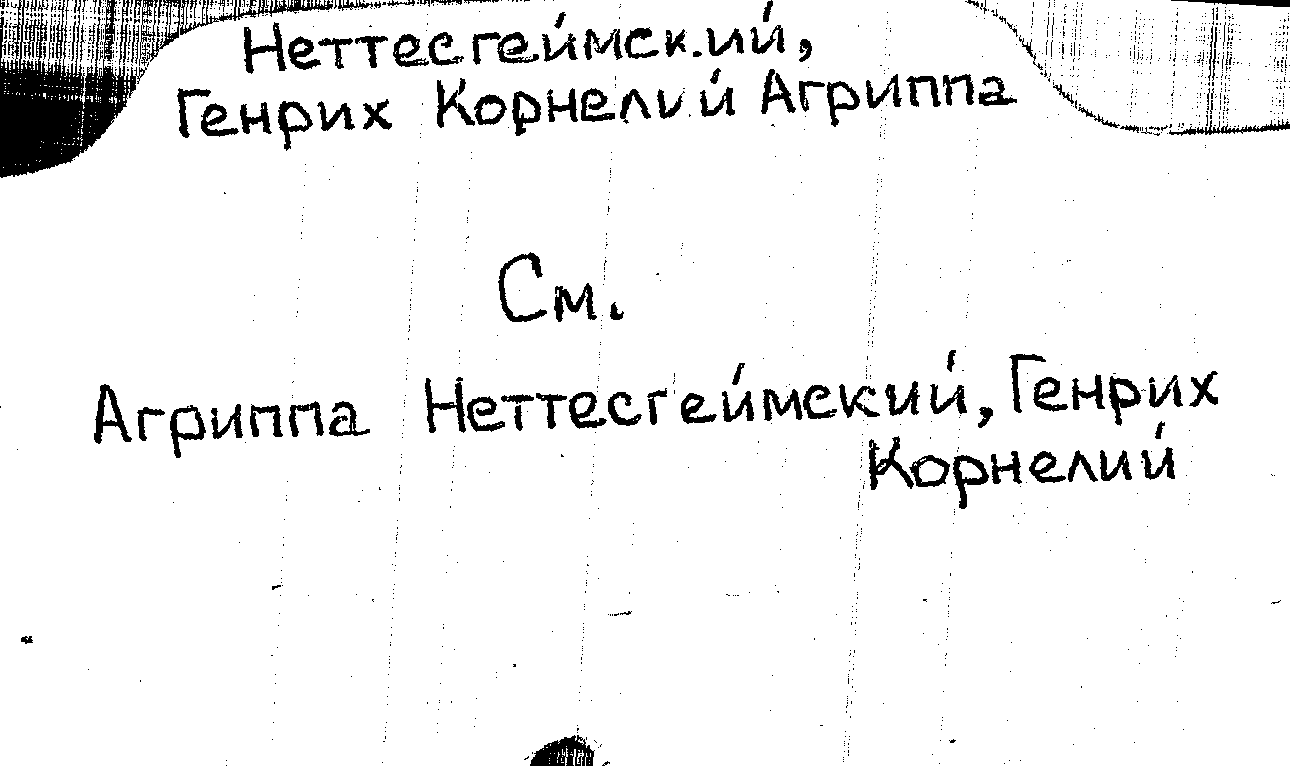 Неттесгеймский,
Генрих Корнелий Агриппа
См.
Агриппа Неттесгеймский, Генрих
Корнелий